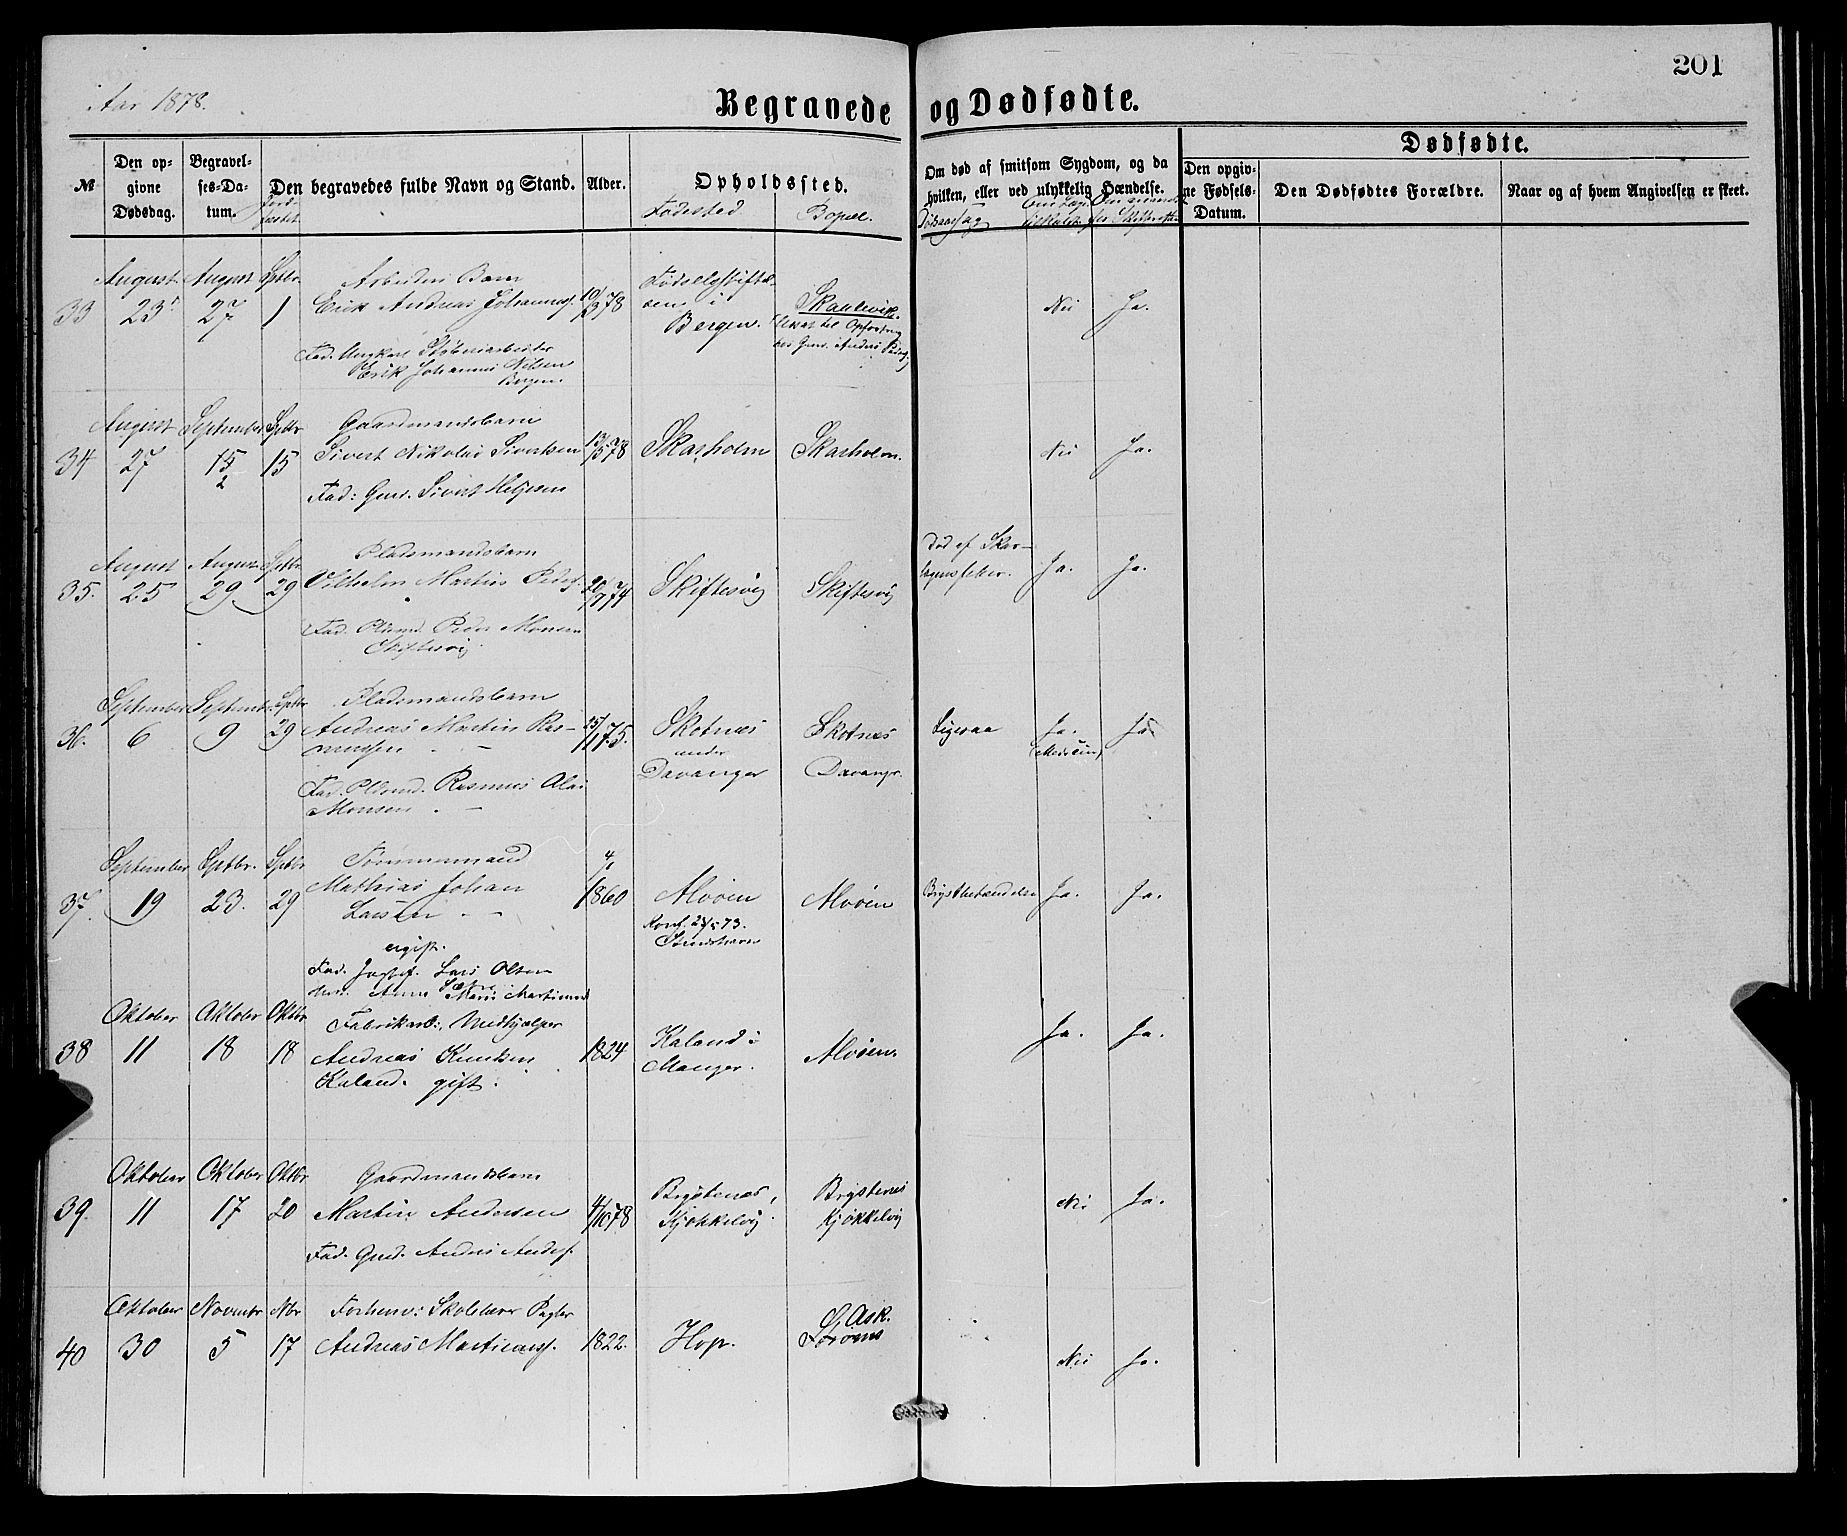 201
Aar 1878.
Begravede og Dødfødte.
№
Den op-
givne
Dødsdag.
Begravel-
ses-Da-
tum.
Jord-
fæstet
Den begravedes fulde Navn og Stand.
Alder.
Opholdssted.
Fødested
Bopæl.
Om død af smitsom Sygdom, og da
hvilken, eller ved ulykkelig Hændelse.
Dødsaarsag
Dødfødte.
Den opgiv-
ne Fødsels-
Datum.
Den Dødfødtes Forældre.
Naar og af hvem Angivelsen er skeet.
33
August 23
August 27
Septbr. 1
Arbeiders Barn
Erik Andreas Johannes.
Fad. Ungkarl Støberiarbeider
Erik Johannes Nilsen
Bergen
10/3 78
Fødselsstiftel-
sen i
Bergen.
Skaalevik.
til Opfostring
hos Grm. Anders
Nei
Ja.
34
August 27
September 15
2
Septbr 15
Gaardmandsbarn
Sivert Nikolai Sivertsen
Fad: Grm. Sivert Helgesen
13/5 78
Skarholm
Skarholm.
Nei
Ja.
35.
August 25
August 29
Septbr 29
Pladsmandsbarn
Vilhelm Martin Peders.
Fad. Pldsmd. Peder Monsen
Skiftesvig
20/7 74
Skiftesvig
Skiftesvig
Død af Skar-
lagensfeber.
Ja.
Ja.
36.
September 6
September 9
Septbr 29
Pladsmandsbarn
Andreas Martin Ras-
mussen
Fad. Pldsmd. Rasmus Olai
Monsen
25/1 75.
Skotnæs
under
Davanger
Skotnæs
Davangr.
Ligesaa
Ja.
(Medicin)
Ja
37.
September 19
Septbr. 23.
Septbr 29
Tømmermand
Mathias Johan
Larsen
ugift.
Fad. Lars Olsen
Mod. Anne Marie Martinusd
4/1
1860
Alvøen
Konf. 73.
Alvøen
Brystbetændelse
Ja.
Ja.
38
Oktober 11
Oktober 18
Oktbr 18
Fabrikarb:, Medhjælper
Andreas Knutsen
Kaland. gift.
1824
Kaland i
Manger.
Alvøen.
Ja.
Ja.
39.
Oktober 11
Oktober 17
Oktbr 20
Gaardmandsbarn
Martin Andersen
Fad. Grmd. Anders Anders.
4/10 78
Brystenæs,
Kjøkkelvig
Brystenes
Kjøkkelvig
Nei
Ja.
40
Oktober 30
Novembr 5
Nbr 17
Forhenv: Skolelærer
Andreas Martinus.
1822.
Hop.
Ask.
Nei
Ja.